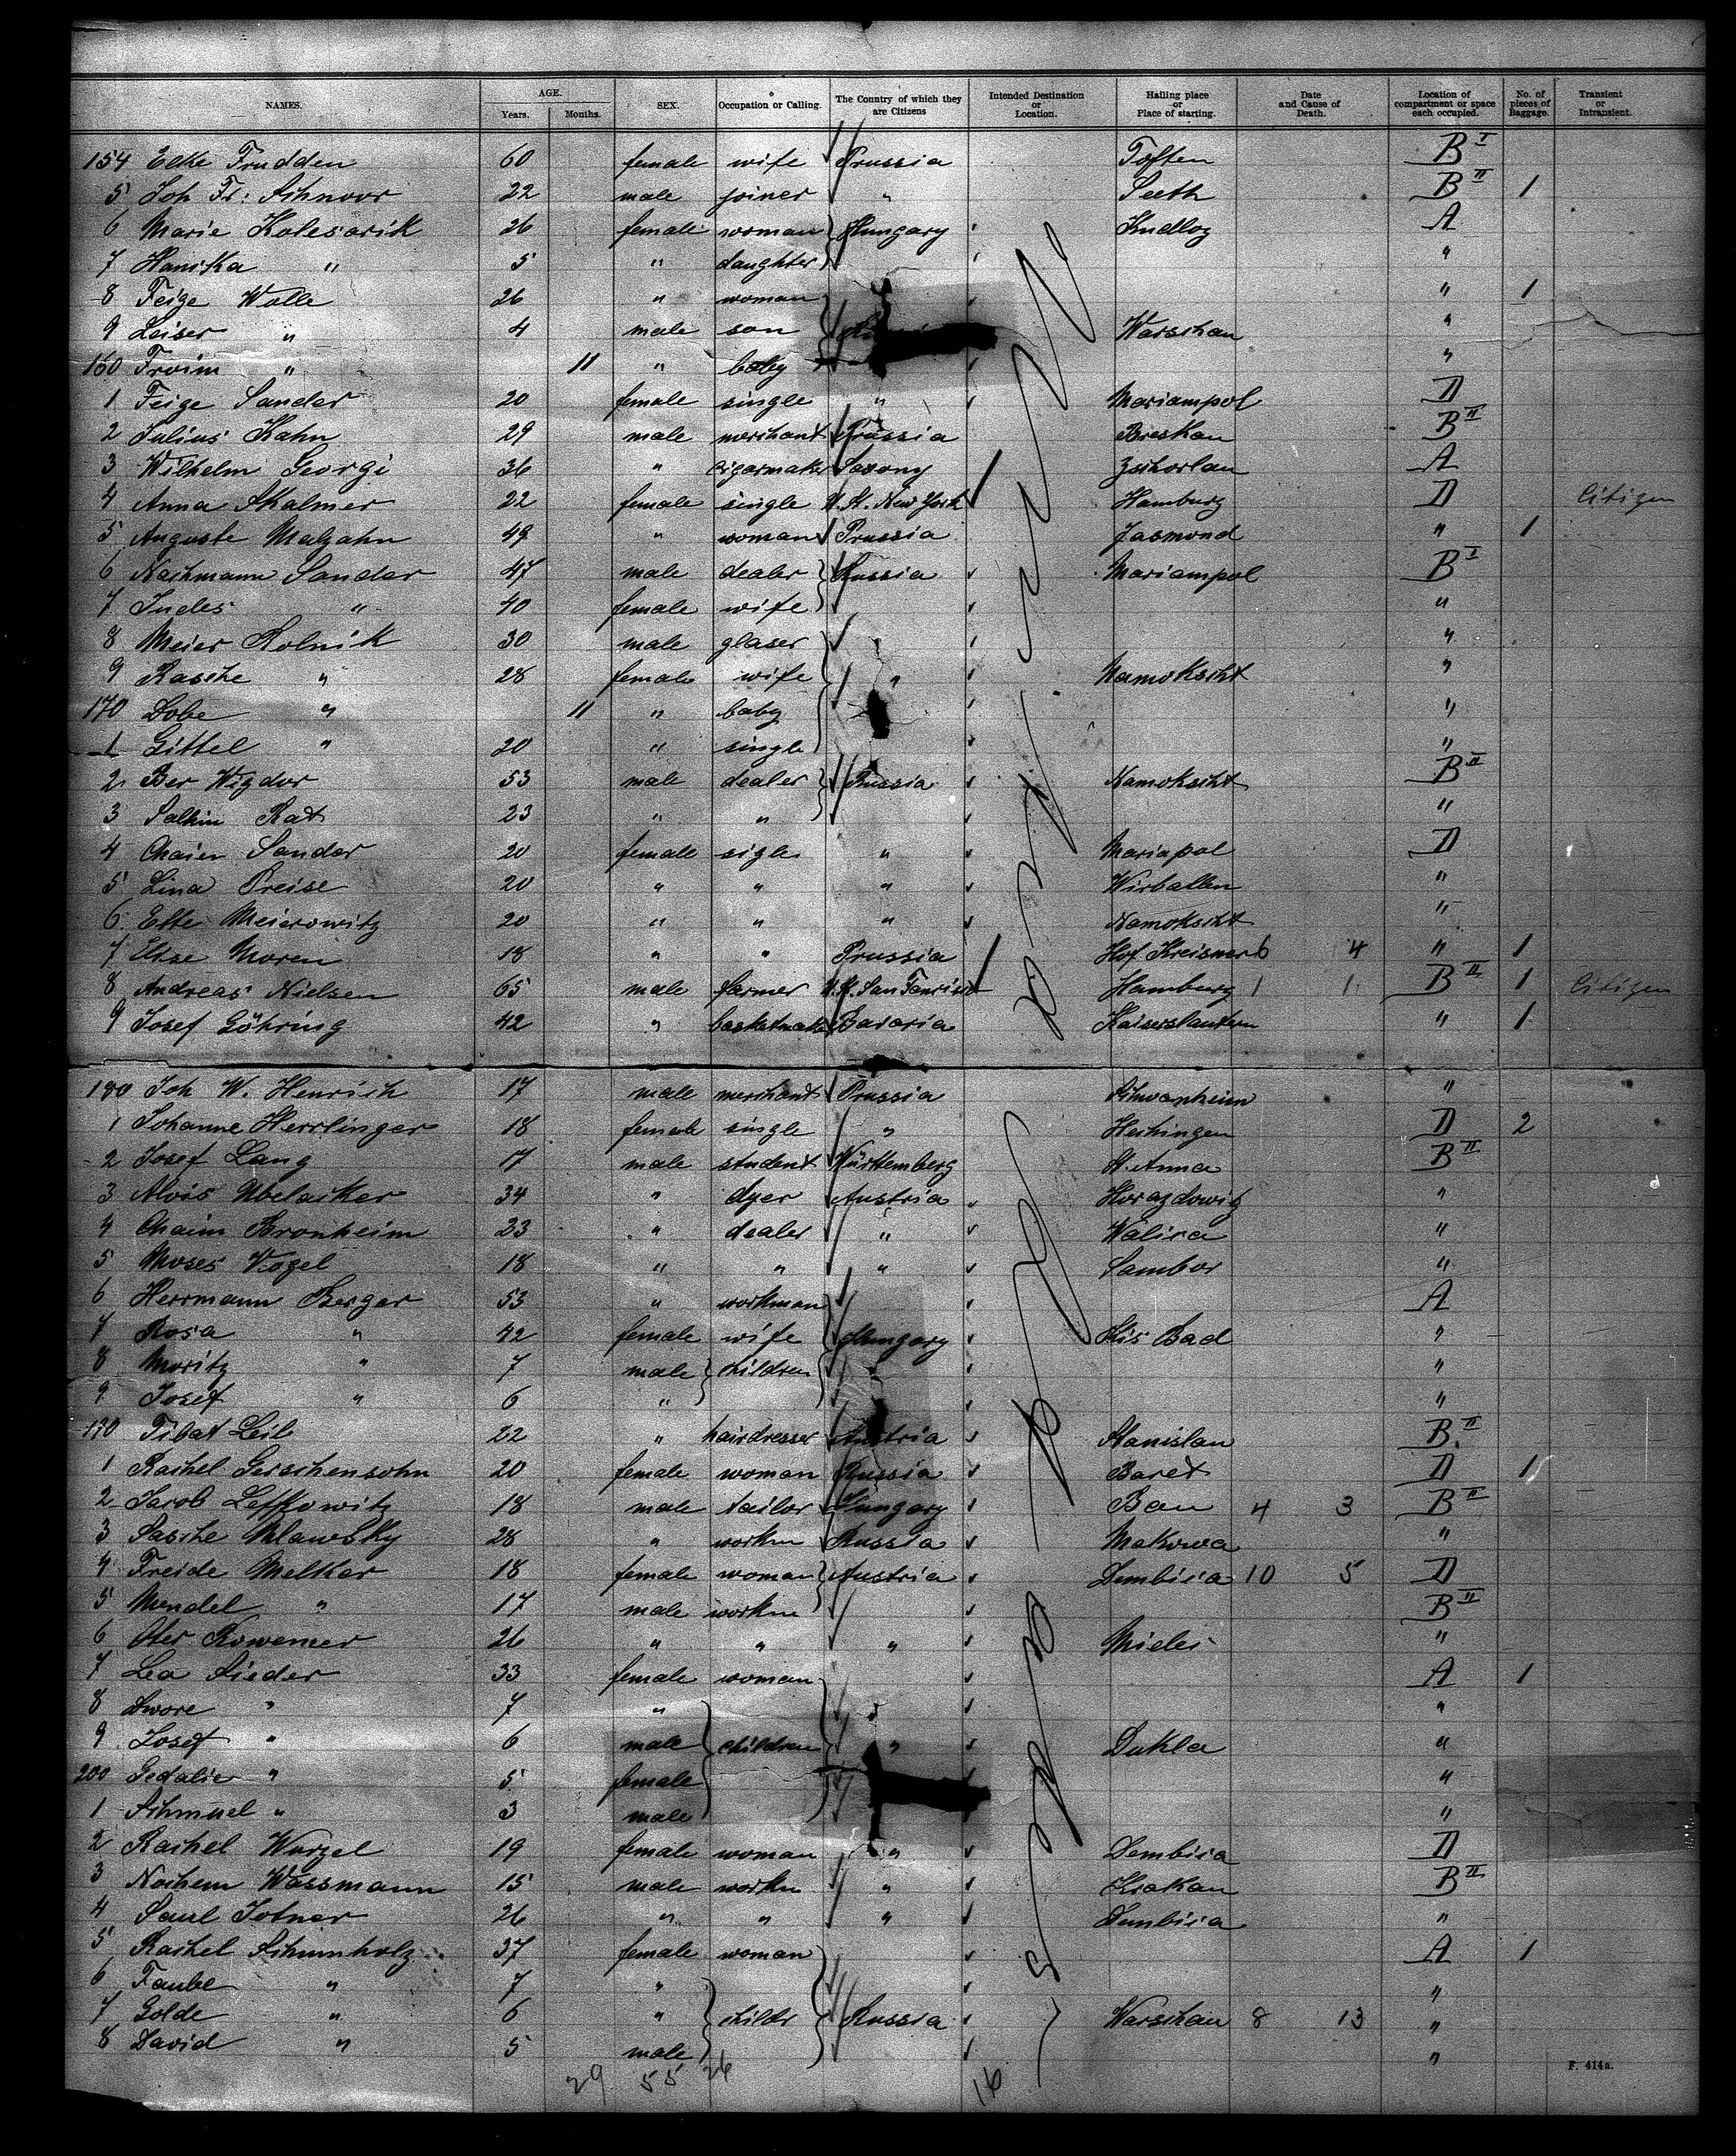 NAMES. AGE. SEX. Occupation or Calling. The Country of which they are Citizens Intended Destination or Location. Hailing place or Place of starting. Date and Cause of Death. Location of compartment or space each occupied. No. of pieces of Baggage. Transient or Intransient.
Years. Months.
154 Elke Frudden 60 female wife Prussia Toften B I
5 Joh Fr: Schnoor 22 male joiner " Seeth B II 1
6 Marie Kolesarik 26 female woman Hungary A
7 Hanika " 5 " daughter "
8 Feige Wolle 26 " woman " 1
9 Leiser " 4 male son Warschau "
160 Froim " 11 " baby "
1 Feige Sandar 20 female single " Mariampol D
2 Julius Kahn 29 male merchant Prussia Breskau B II
3 Wilhelm Georgi 36 " cigarmaker Saxony Zschorlau A
4 Anna Skalmer 22 female single U. St. New York Hamburg D Citizen
5 Auguste Malzahn 49 " woman Prussia Jasmond " 1
6 Nachmann Sandar 47 male dealer Russia Mariampol B I
7 Judes " 40 female wife "
8 Meier Kolnik 30 male glaser "
9 Rasche " 28 female wife " Namokscht "
170 Dobe " 11 " baby "
1 Gittel " 20 " single "
2 Ber Wigdor 53 male dealer Russia Namokscht B II
3 Salkin Rat 23 " " "
4 Chaien Sandar 20 female sigle " Mariapol D
5 Lina Preise 20 " " " Wirballen "
6 Ette Meierowitz 20 " " " Namokscht "
7 Elise Moren 18 " " Prussia Hof Kreisner 6 4 " 1
8 Andreas Nielsen 65 male farmer U. St. San Fancisco Hamburg 1 1 B II 1 Citizen
9 Josef Göhring 42 " basketmaker Bavaria Kaiserslautern " 1
180 Joh W. Henrich 17 male merchant Prussia Schwanheim "
1 Johanne Herrlinger 18 female single " Hechingen D 2
2 Josef Lang 17 male student Württemberg St. Anna B II
3 Alois Ubelacker 34 " dyer Austria Horazdowitz "
4 Chaim Bronheim 23 " dealer " Walica "
5 Moses Vogel 18 " " " Sambor "
6 Herrmann Berger 53 " workman A
7 Rosa " 42 female wife Hungary Kis Bad "
8 Moritz " 7 male children "
9 Josef " 6 " "
170 Tibat Leib 22 " hairdresser Austria Stanislau B II
1 Rachel Gerschensohn 20 female woman Russia Baret D 1
2 Jacob Leffkowitz 18 male tailor Hungary Ban 4 3 B II
3 Sasche Mlawsky 28 " workm Russia Makowa "
4 Freide Melker 18 female woman Austria Dembica 10 5 D
5 Mendel " 17 male workm B II
6 Oter Rowemer 26 " " " Mielec "
7 Lea Sieder 33 female woman A 1
8 Dwore " 7 " "
9 Josef " 6 male children " Dukla "
200 Gedalie " 5 female "
1 Schmuel " 3 male "
2 Rachel Wurzel 19 female woman " Dembica D
3 Nochem Wassmann 15 male workm " Krakau B II
4 Saul Jotner 26 " " " Dembica "
5 Rachel Schumholz 37 female woman A 1
6 Taube " 7 " "
7 Golde " 6 " childr Russia Warschau 8 13 "
8 David " 5 male "
29 55 26 16
F. 414a.